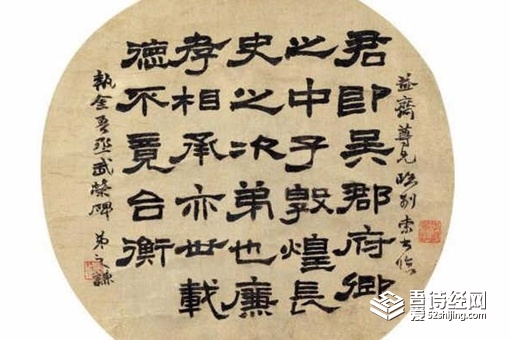 益齋尊兄臨別索書臨
君即吳郡府卿
之中子敦煌長
史之次弟也廉
孝相承亦世載
德不竟台衡
執金吾丞武榮碑 弟之謙
吾爱诗经网
52shijing.com